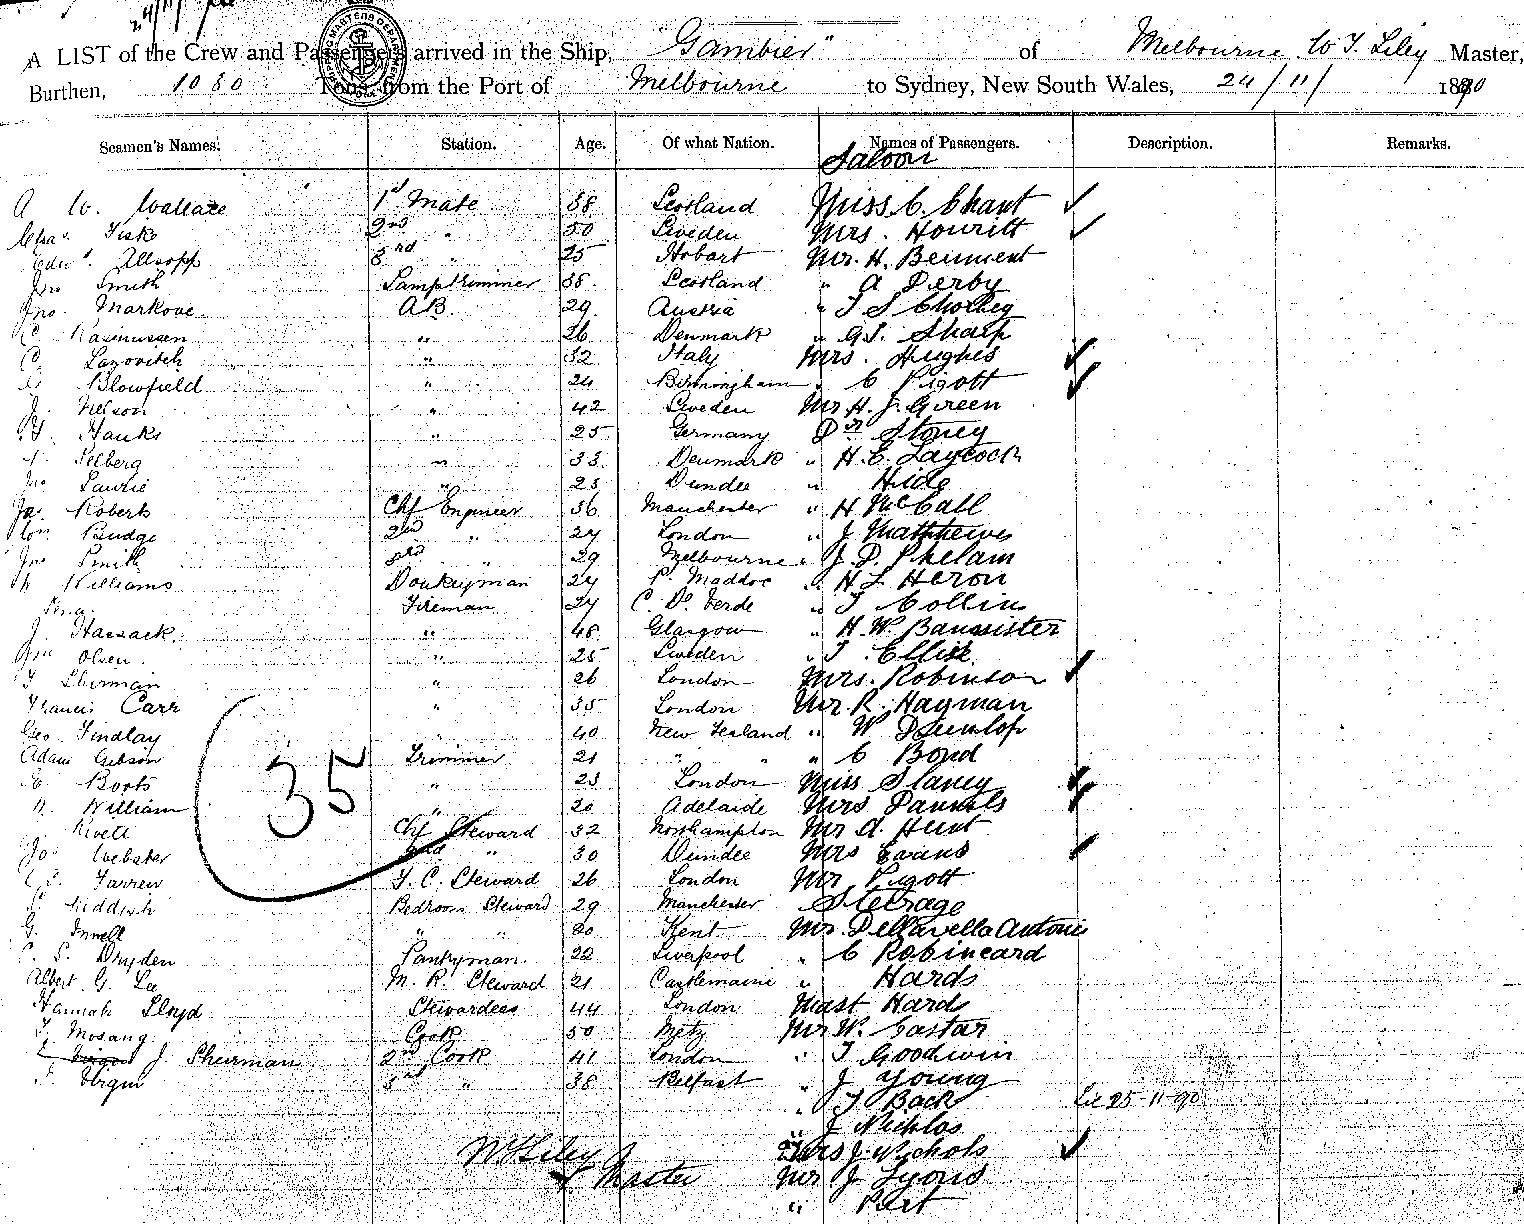 24/11/
A LIST of the Crew and Passengers arrived in the Ship, "Gambier" of Melbourne W T. Liley Master,
Burthen, 1080 Tons, from the Port of Melbourne to Sydney, New South Wales, 24/11/ 1890
Seamen's Names. Station. Age. Of what Nation. Names of Passengers. Description. Remarks.
Saloon
A W. Wallace 1st Mate 38 Scotland Miss C. Chant ✓
Chas. Fisk 2nd " 50 Sweden Mrs. Howritt ✓
Edwd. Allsopp 3rd " 25 Hobart Mr. H. Beument
Jno Smith Lamptrimmer 38 Scotland " A Derby
Jno. Markove A.B. 29 Austria " T S
C Rasmussen " 26 Denmark " G.S. Sharp
C. Lazovitch " 32 Italy Mrs. Hughes ✓
Blowfield " 24 Birmingham " C Pigott ✓
J. Nelson " 42 Sweden Mr H. J. Green
H. Hauks " 25 Germany Dr Stoney
Selberg " 33 Denmark " H. E. Laycock
Jno Lawrie " 23 Dundee " Hide
Jas. Roberts Chf Engineer 36 Manchester " H McCall
Budge 2nd " 27 London " J Matthews
Jno Smith 3rd " 29 Melbourne " J. D. Phelam
W Williams Donkeyman 27 P. Maddoc " H L Heron
Fireman 27 C. De Verde " T Collins
J. Hassack " 48 Glasgow " H. W. Bannister
Jno Olsen " 25 Sweden " T. Ellise
T Sherman " 26 London Mrs. Robinson ✓
Francis Carr " 35 London Mr R. Hayman
Geo. Findlay " 40 New Zealand " W Dunlop
Adam Gibson Trimmer 21 " " " C Bond
E. Boots " 23 London Miss Slaney ✓
W. William " 20 Adelaide Mrs Daniels ✓
Rivett Chf Steward 32 Northampton Mr A. Hunt
Jas Webster 2nd " 30 Dundee Mrs Evans ✓
Farrew F. C. Steward 26 London Mr Pigott
Reddish Bedroom Steward 29 Manchester Steerage
G. " " 20 Kent Mr. Dellavella Antonio
C. S. Dryden Pantryman 22 Liverpool " C Robineard
Albert G. Lee M. R. Steward 21 Castlemaine " Hards
Hannah Lloyd Stewardess 44 London Mast Hard
F. Mosang Cook 50 Metz Mr W. Castar
J. Sherman 2nd Cook 41 London " T Goodwin
F. Virgin 3rd " 38 Belfast " J Young
" T Back 25-11-90
" J Nicklas
Mrs J. Nichols ✓
Mr J Lyons
" Peit
35
W T Liley
Master